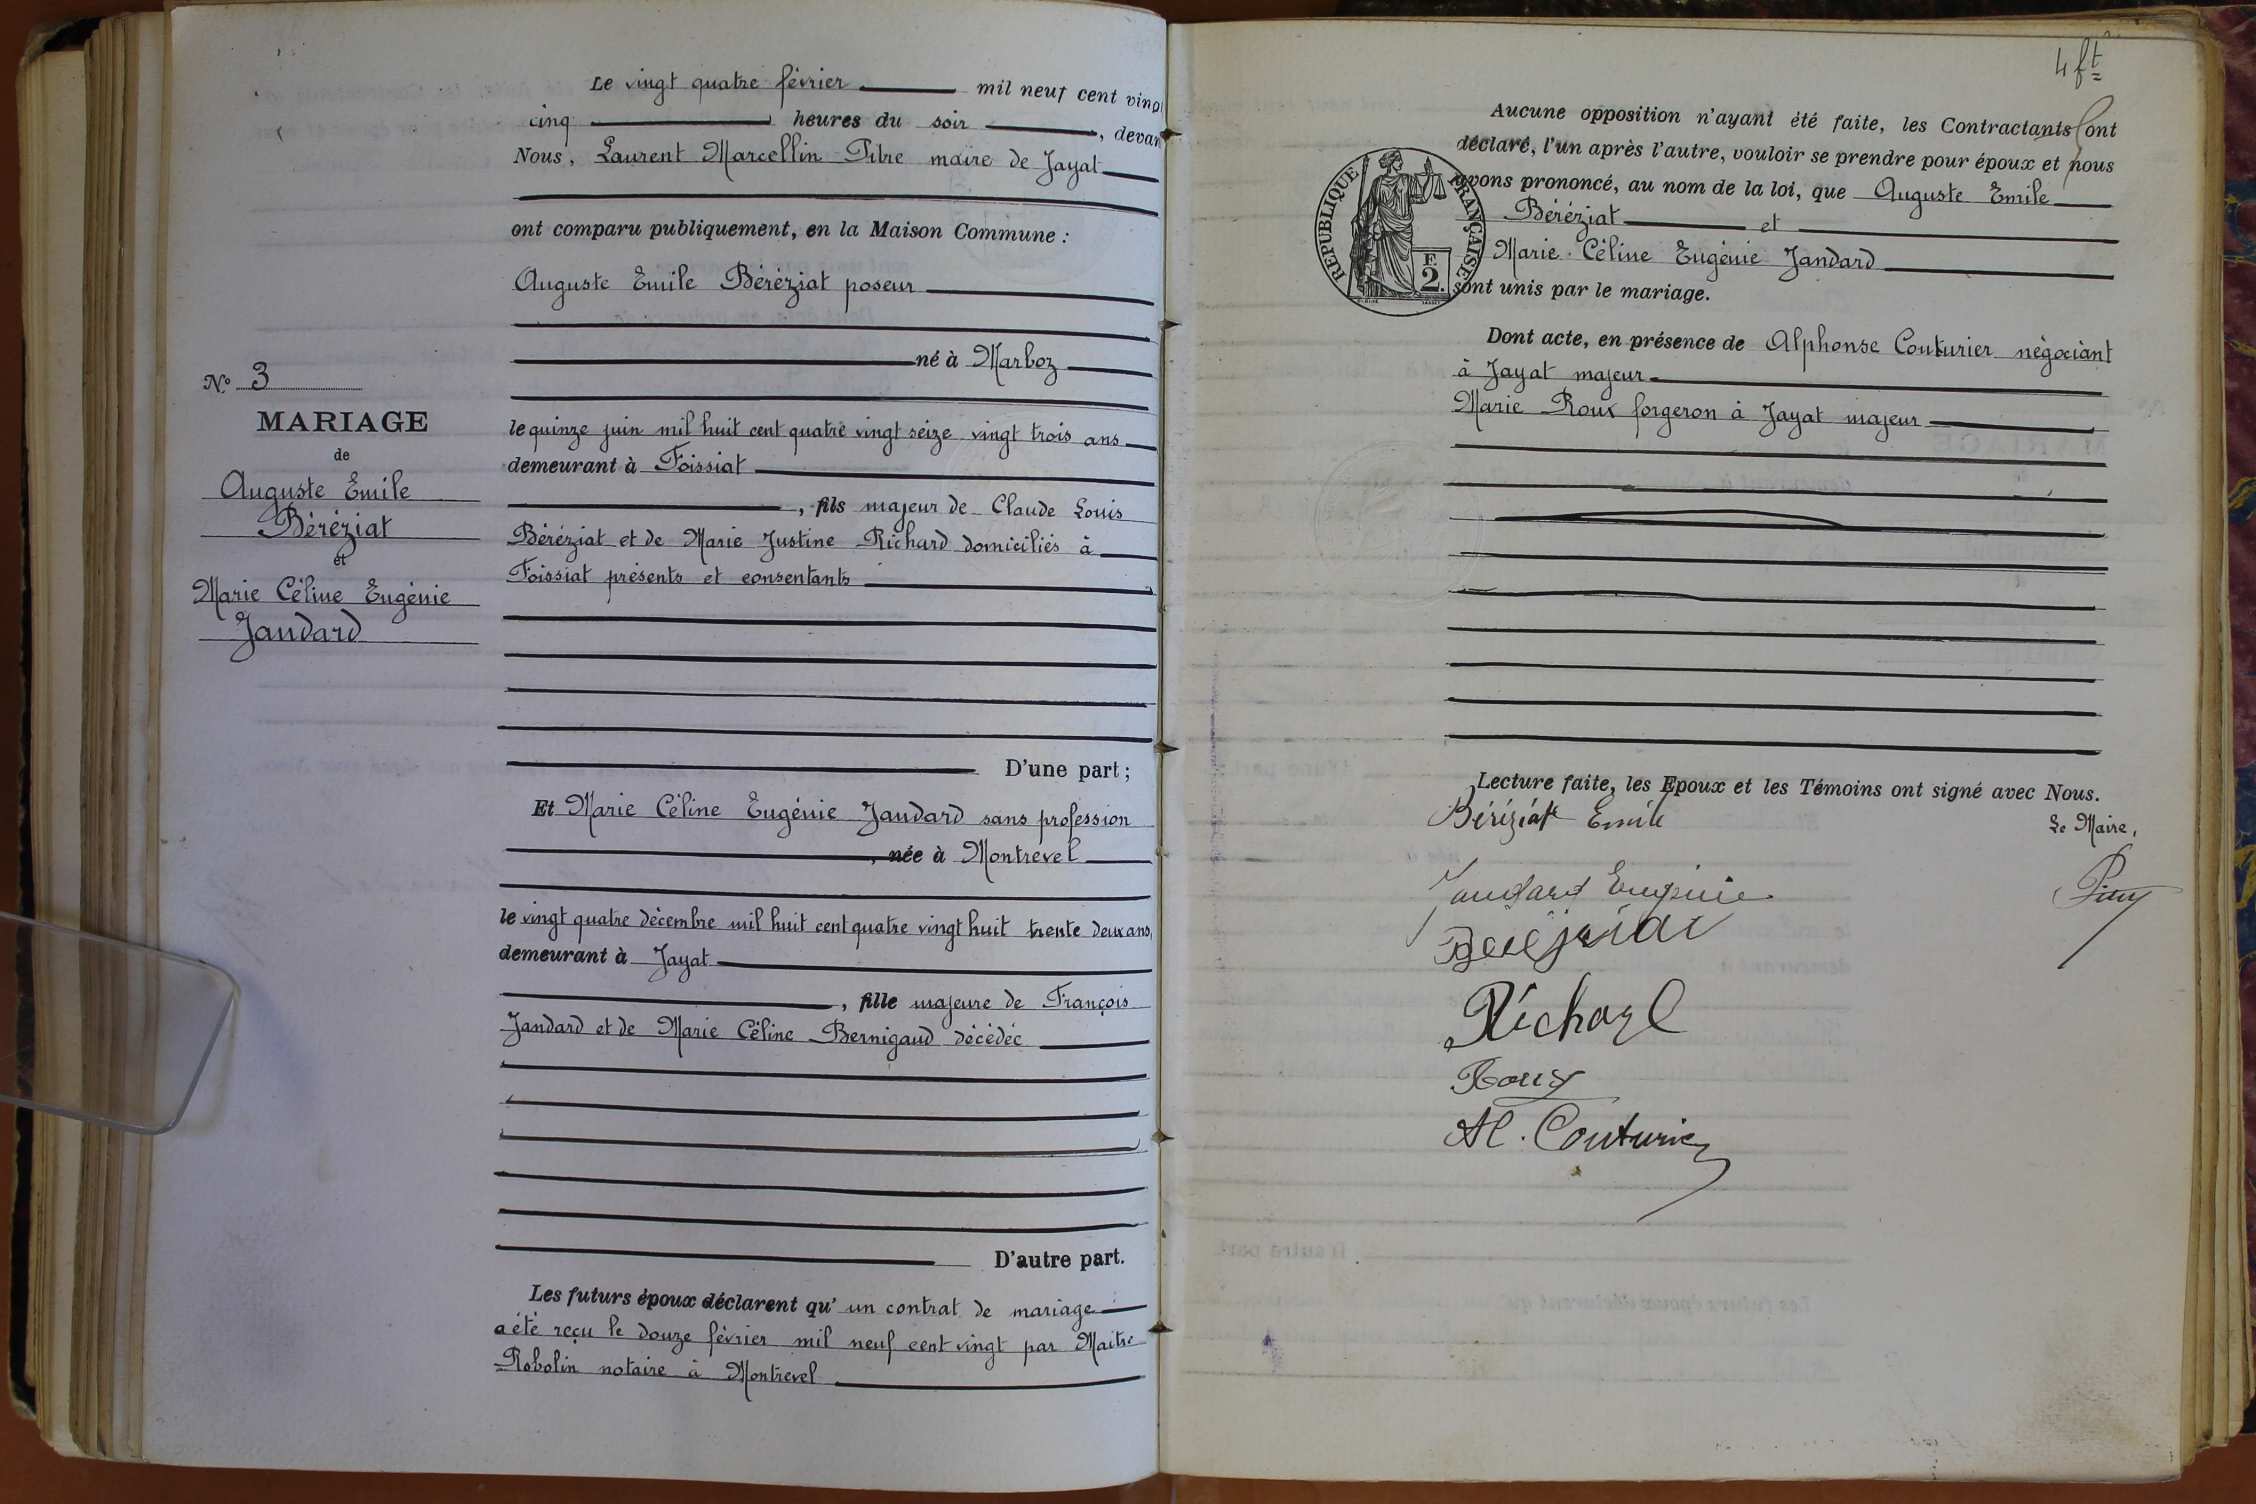 Le vingt quatre février mil neuf cent vingt
cinq heures du soir, devant
Nous, Laurent Marcellin maire de Jayat
ont comparu publiquement, en la Maison Commune :
Auguste Emile Béréziat poseur
né à Marboz
le quinze juin mil huit cent quatre vingt seize vingt trois ans
demeurant à Foissiat
, fils majeur de Claude Louis
Béréziat et de Marie Justine Richard domiciliés à
Foissiat présents et consentants
D'une part ;
Et Marie Céline Eugénie Jandard sans profession
, née à Montrevel
le vingt quatre décembre mil huit cent quatre vingt huit trente deux ans,
demeurant à Jayat
, fille majeure de François
Jandard et de Marie Céline Bernigaud décédée
D'autre part.
Les futurs époux déclarent qu' un contrat de mariage
a été reçu le douze février mil neuf cent vingt par Maitre
Robolin notaire à Montrevel
N.º 3
MARIAGE
de
Auguste Emile
Béréziat
et
Marie Céline Eugénie
Jandard
4 ft
Aucune opposition n'ayant été faite, les Contractants ont
déclaré, l'un après l'autre, vouloir se prendre pour époux et nous
avons prononcé, au nom de la loi, que Auguste Emile
Béréziat et
Marie Céline Eugénie Jandard
sont unis par le mariage.
REPUBLIQUE FRANÇAISE
F.
2.
Dont acte, en présence de Alphonse Couturier négociant
à Jayat majeur
Marie Roux forgeron à Jayat majeur
Lecture faite, les Epoux et les Témoins ont signé avec Nous.
Béréziat Emile
Le Maire,
Jandard Eugénie
Béréziat
Richard
Roux
Al. Couturier